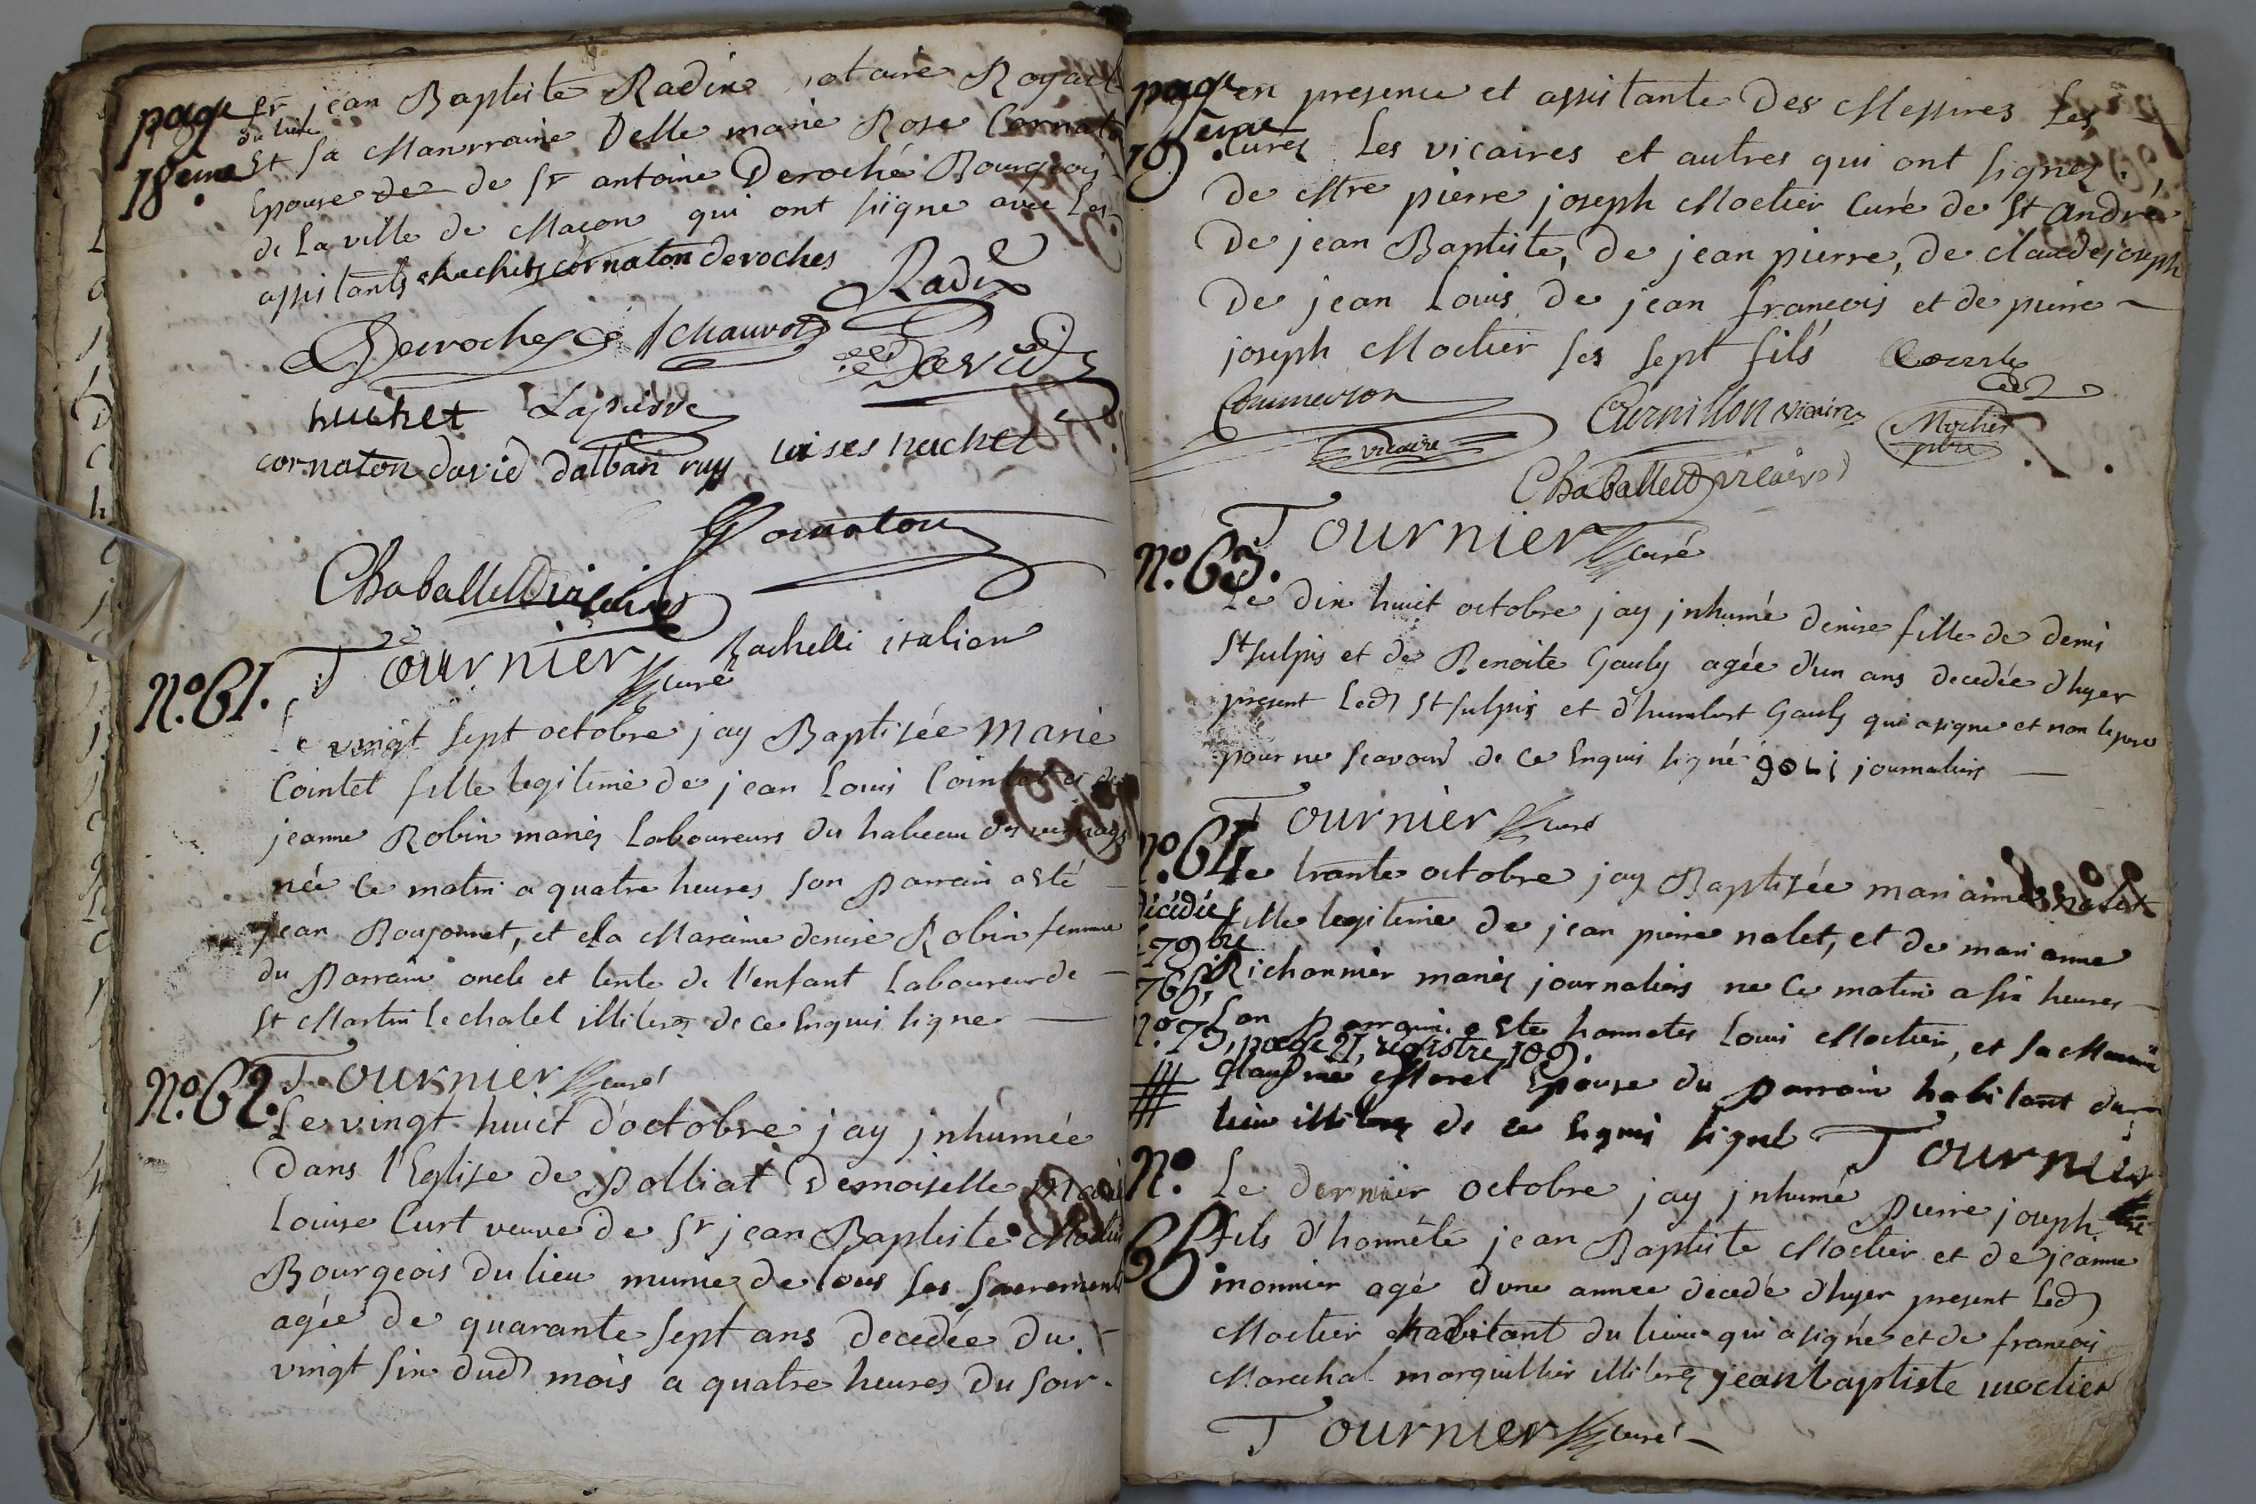 page
18ème
Sr jean Baptiste Radix notaire Royal
du lieu
Et sa Marraine Delle marie Rose Cornaton
Epouse de de Sr antoine Deroché Bourgeois
de la ville de Macon qui ont signe avec les
assistants huchet cornaton deroches
Radix
Desroches chauvot
David
huchet Lapierre
cornaton david dalban ruy huchet
Cornaton
Chaballet vicaire
Rachelli italien
Tournier curé
No. 61.
Le vingt sept octobre jay Baptisée marie
Cointet fille legitime de jean Louis Cointet et de
jeanne Robin mariés Laboureurs du hameau des
née ce matin a quatre heures son parrain a esté
jean Roujonnet, et sa Maraine denise Robin femme
du Parrain oncle et tente de l'enfant Laboureur de
St Martin le chatel illiterés de ce Enquis signe
Tournier curé
No. 62.
Le vingt huict d'octobre jay jnhumée
dans l'Eglise de Polliat Demoiselle marie
Louise Curt veuve de Sr jean Baptiste Moctier
Bourgeois du lieu munie de tous ses sacrements
agée de quarante sept ans decedée du
vingt six dud mois a quatre heures du soir.
page
19ème.
en presence et assistante des Messires les
Curés les vicaires et autres qui ont signés,
de Mtre pierre joseph Moctier Curé de St andré
de jean Baptiste, de jean pierre, de claude joseph
de jean Louis, de jean francois et de pierre
joseph Moctier ses sept fils
Commerson vicaire
Cornillon vicaire
Moctier
ptre
Chaballet vicaire
Tournier curé
No. 63.
Le dix huict octobre jay jnhumé denise fille de denis
St sulpis et de Benoite Gauly agée d'un ans decedée d'hyer
present Led St sulpis et d'humbert Gauly qui a signe et non le pere
pour ne scavoir de ce Enquis signé goli journaliers
Tournier curé
No. 64
Le trante octobre jay Baptisée marianne nalet
décédée
fille legitime de jean pierre nalet, et de marianne
Richonnier mariés journaliers ne ce matin a six heures
Son parrain a ste honnetes Louis Moctier, et sa Marraine
No. 73, page 21, registre 109.
Claudine Morel Epouse du parrain habitant du
lieu illiterés de ce Enquis signé Tournier
curé
No.
65
Le dernier octobre jay jnhumé pierre joseph
fils d'honnête jean Baptiste Moctier et de jeanne
monnier agé d'une année decedé d'hyer present Led
Moctier habitant du lieu qui a signé et de francois
Marechal marguillier illiterés jean baptiste moctier
Tournier curé